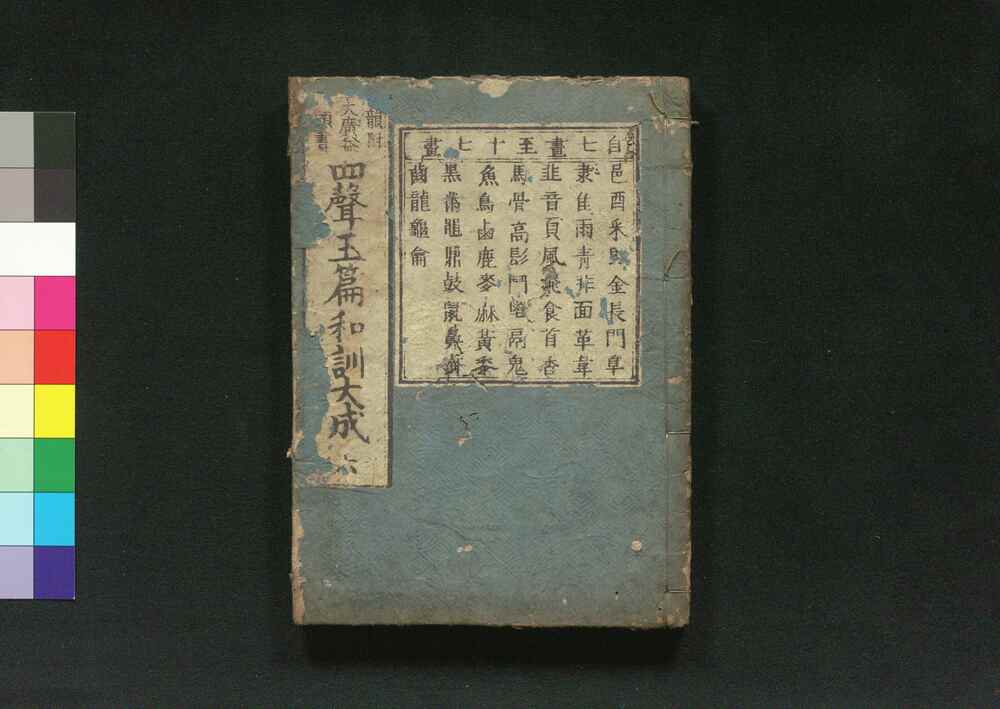 自七畫至十七畫
邑酉釆里金長門阜
隶隹雨青非面革韋
韭音頁風飛食首香
馬骨高髟鬥鬯鬲鬼
魚鳥鹵鹿麥麻黃黍
黑黹黽鼎鼓鼠鼻齊
齒龍龜龠
韻附
大廣益
頭書
四聲玉篇和訓大成 六